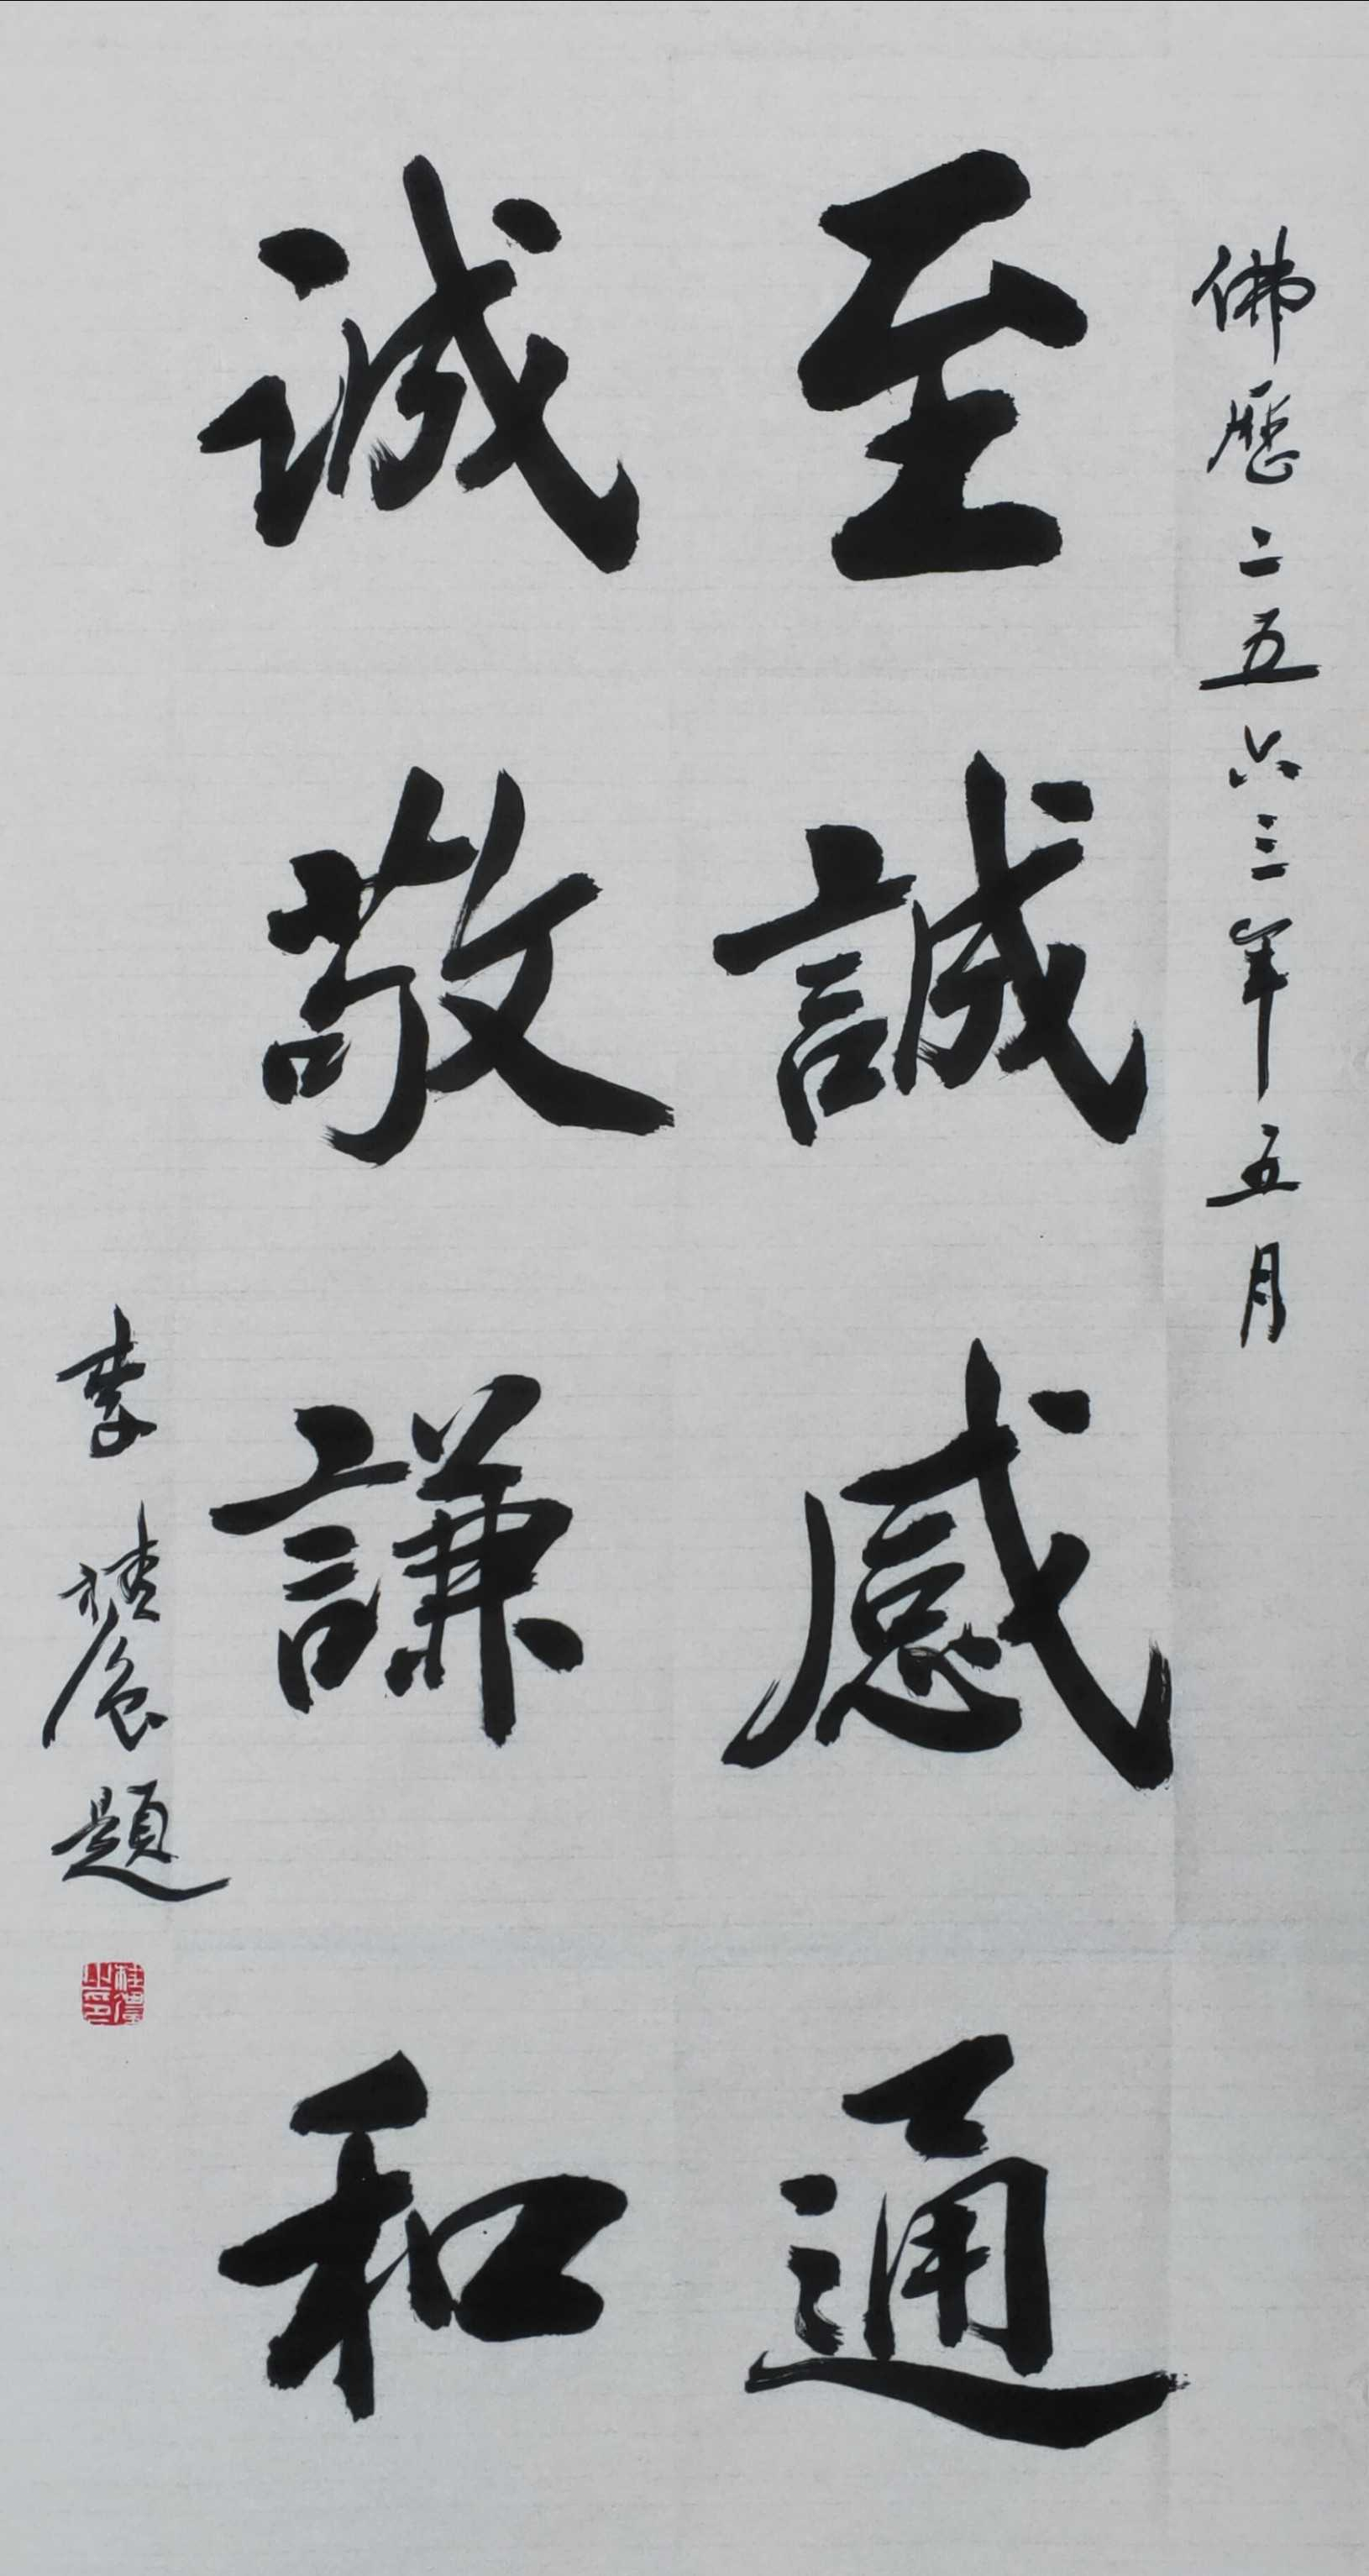 佛歷二五六三年五月
至誠感通
诚敬謙和
李 題